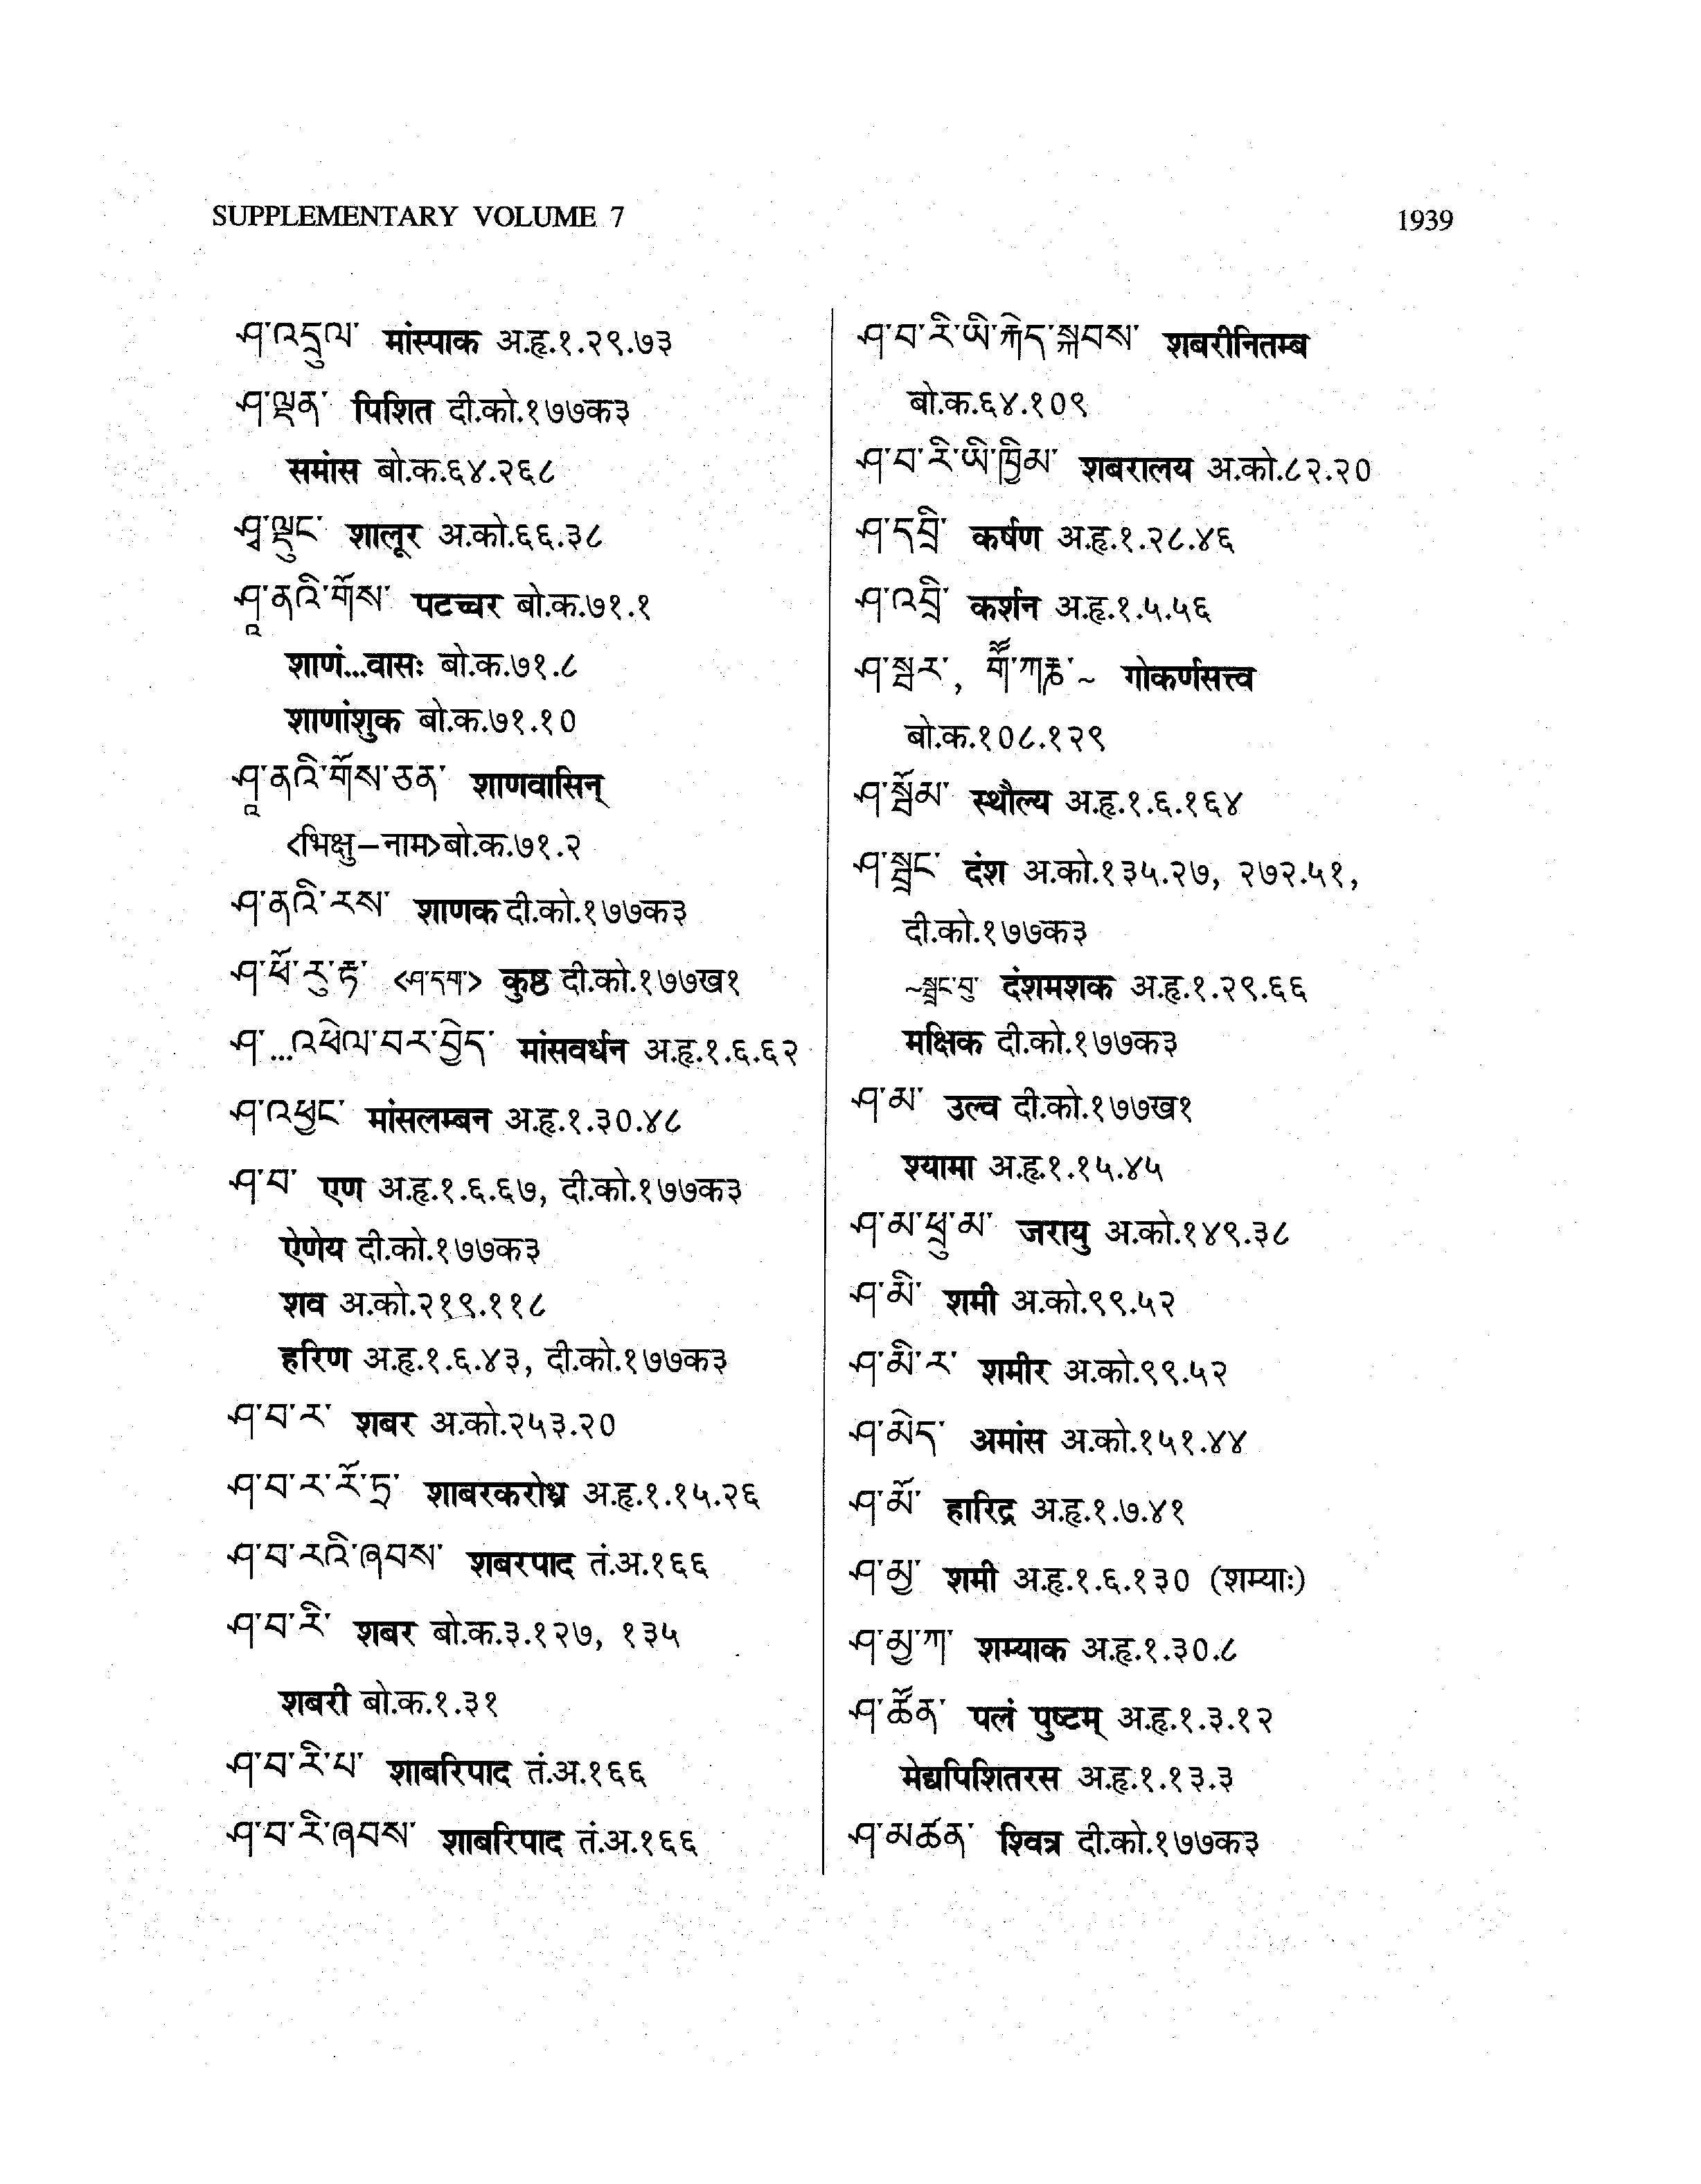 SUPPLEMENTARY VOLUME 7
1939
ཤ་འདྲུལ་ मांस्पाक अ.हृ.१.२९.७३
ཤ་ལྡན་ पिशित दी.को.१७७क३
समांस बो.क.६४.२६८
ཤྭ་ལྡུང་ शालूर अ.को.६६.३८
ཤཱ་ནའི་གོས་ पटच्चर बो.क.७१.१
शाणं...वासः बो.क.७१.८
शाणांशुक बो.क.७१.१०
ཤཱ་ནའི་གོས་ཅན་ शाणवासिन्
<भिक्षु–नाम>बो.क.७१.२
ཤ་ནའི་རས་ शाणक दी.को.१७७क३
ཤ་ཕོ་རུ་རྟ་ <ཤ་དཀ་> कुष्ठ दी.को.१७७ख१
ཤ་...འཕེལ་བར་བྱེད་ मांसवर्धन अ.हृ.१.६.६२
ཤ་འཕྱང་ मांसलम्बन अ.हृ.१.३०.४८
ཤ་བ་ एण अ.हृ.१.६.६७, दी.को.१७७क३
ऐणेय दी.को.१७७क३
शव अ.को.२१९.११८
हरिण अ.हृ.१.६.४३, दी.को.१७७क३
ཤ་བ་ར་ शबर अ.को.२५३.२०
ཤ་བ་ར་རོ་ཏྲ་ शाबरकरोध्र अ.हृ.१.१५.२६
ཤ་བ་རའི་ཞབས་ शबरपाद तं.अ.१६६
ཤ་བ་རི་ शबर बो.क.३.१२७, १३५
शबरी बो.क.१.३१
ཤ་བ་རི་པ་ शाबरिपाद तं.अ.१६६
ཤ་བ་རི་ཞབས་ शाबरिपाद तं.अ.१६६
ཤ་བ་རི་ཡི་རྐེད་སྐབས་ शबरीनितम्ब
बो.क.६४.१०९
ཤ་བ་རི་ཡི་ཁྱིམ་ शबरालय अ.को.८२.२०
ཤ་དབྲི་ कर्षण अ.हृ.१.२८.४६
ཤ་འབྲི་ कर्शन अ.हृ.१.५.५६
ཤ་སྦར་, གོ་ཀརྞ་~ गोकर्णसत्त्व
बो.क.१०८.१२९
ཤ་སྦོམ་ स्थौल्य अ.हृ.१.६.१६४
ཤ་སྦྲང་ दंश अ.को.१३५.२७, २७२.५१,
दी.को.१७७क३
~སྦྲང་བུ་ दंशमशक अ.हृ.१.२९.६६
मक्षिक दी.को.१७७क३
ཤ་མ་ उल्व दी.को.१७७ख१
श्यामा अ.हृ.१.१५.४५
ཤ་མ་ཕྲུ་མ་ जरायु अ.को.१४९.३८
ཤ་མི་ शमी अ.को.९९.५२
ཤ་མི་ར་ शमीर अ.को.९९.५२
ཤ་མེད་ अमांस अ.को.१५१.४४
ཤ་མོ་ हारिद्र अ.हृ.१.७.४१
ཤ་མྱ་ शमी अ.हृ.१.६.१३० (शम्याः)
ཤ་མྱ་ཀ་ शम्याक अ.हृ.१.३०.८
ཤ་ཚོན་ पलं पुष्टम् अ.हृ.१.३.१२
मेद्यपिशितरस अ.हृ.१.१३.३
ཤ་མཚན་ श्वित्र दी.को.१७७क३